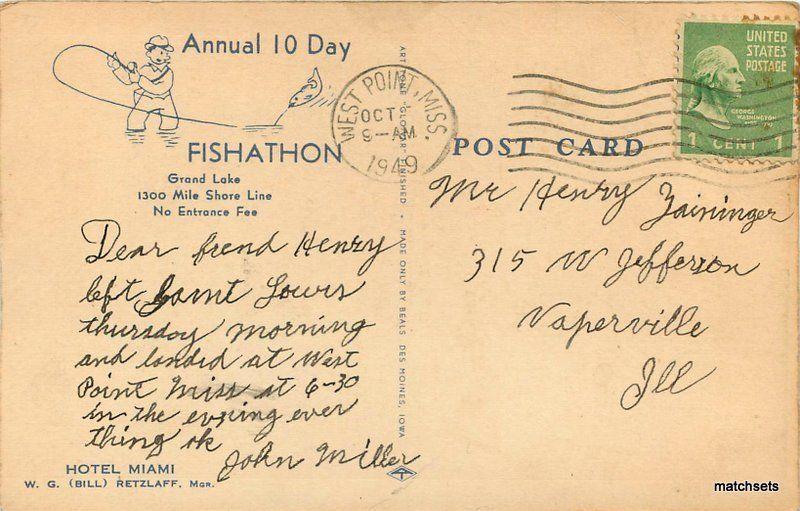 Annual 10 Day
FISHATHON
Grand Lake
1300 Mile Shore Line
No Entrance Fee
Dear frend Henry
left Saint Louis
thursday morning
and landed at West
Point Miss at 6-30
in the evening ever
thing ok
John Miller
HOTEL MIAMI
W. G. (BILL) RETZLAFF, Mgr.
ART-TONE "GLO-VAR" FINISHED • MADE ONLY BY BEALS, DES MOINES, IOWA
WEST POINT, MISS.
OCT
9-AM
1949
UNITED
STATES
POSTAGE
GEORGE
WASHINGTON
1 CENT 1
POST CARD
Mr Henry Zaininger
315 W Jefferson
Naperville
Ill
matchsets